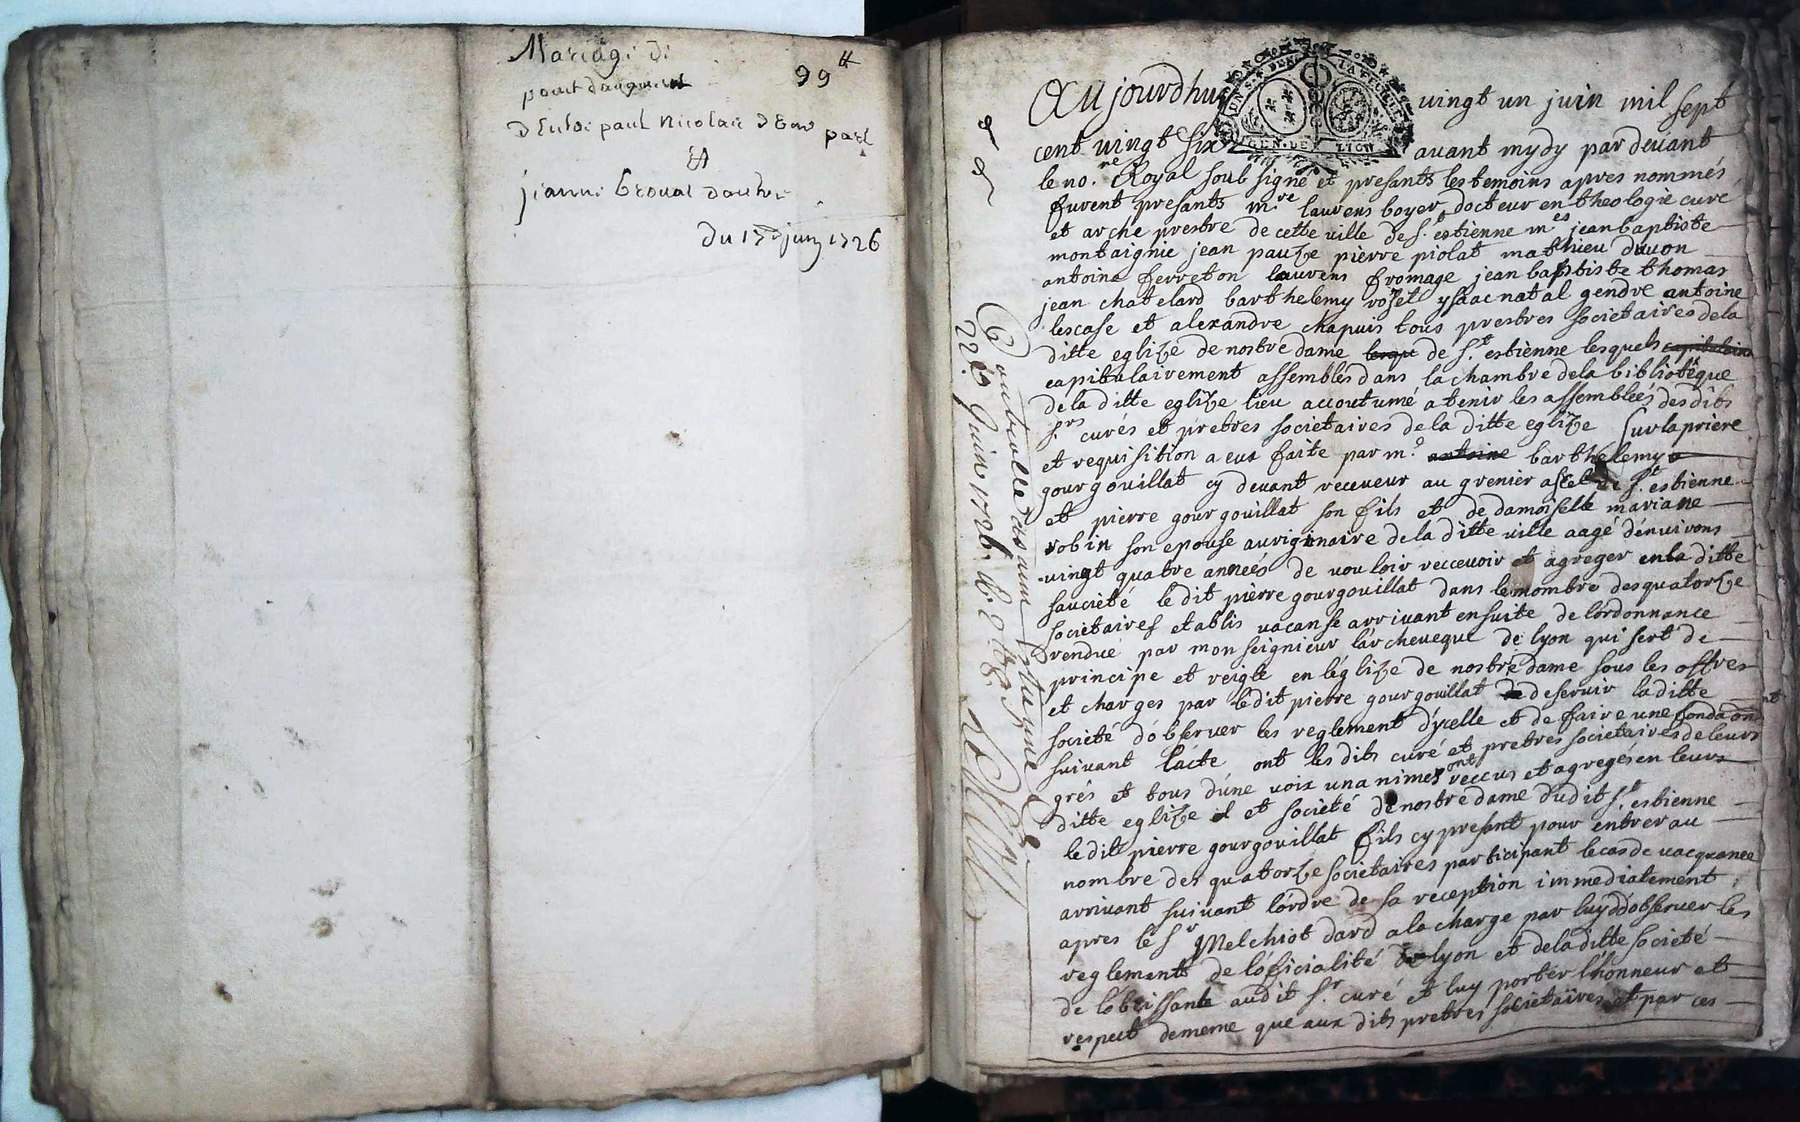 Mariage de
99 tt
d'Entre paul Nicolas d'une part
Et
jeanne d'autre
Du 17e juin 1726
Aujourdhuy vingt un juin mil sept
cent vingt six avant mydy par devant
GEN. DE LION
le no.re Royal soub signé et presants les temoins apres nommés
furent presants m.re laurens boyer docteur en theologie curé
et arche prestre de cette ville de s.t estienne m.es jean baptiste
montaignie jean pauze pierre piolat mathieu duuon
antoine ferreton laurens fromage jean baptiste thomas
jean chatelard barthelemy rozet ysaac natal gendre antoine
lescase et alexandre chapuis tous prestres societaires dela
ditte eglize de nostre dame lesque de s.t estienne lesquels capitulaire
capitulairement assemblés dans la chambre dela biblioteque
dela ditte eglize lieu accoutumé a tenir les assemblées desdits
s.rs curés et pretres societaires dela ditte eglize sur la priere
et requisition a eux faite par m.e antoine barthelemy
gourgouillat cy devant receveur au grenier a sel de s.t estienne
et pierre gourgouillat son fils et de damoiselle mariane
robin son epouse auriginaire dela ditte ville aagé dénuirons
vingt quatre années de vouloir reccevoir et agreger en la ditte
sauciété le dit pierre gourgouillat dans le nombre des quatorze
societaires etablis vacanse arrivant ensuite de lordonnance
rendue par monseignieur lárcheveque de lyon qui sert de
principe et reigle en léglize de nostre dame sous les offres
et charges par ledit pierre gourgouillat de deservir laditte
société dóbserver les reglement dýcelle et de faire une fondaon
suivant lácte ont les dits curé et pretres societaires de leurs
grés et tous dúne voix unanimes ont reccus et agregés en leurs
ditte eglize et société de nostre dame dudit s.t estienne
le dit pierre gourgouillat fils cy presant pour entrer au
nombre des quatorze societaires participant le cas de vacquance
arrivant suivant lórdre de sa reception immediatement
apres le s.r Melchiot dard a la charge par luy dobserver les
reglements de lóficialité de lyon et dela ditte société
de lobeissante audit s.r curé et luy porter lhonneur et
respect de meme que aux dits pretres societaires et par ces
22e Juin 1726